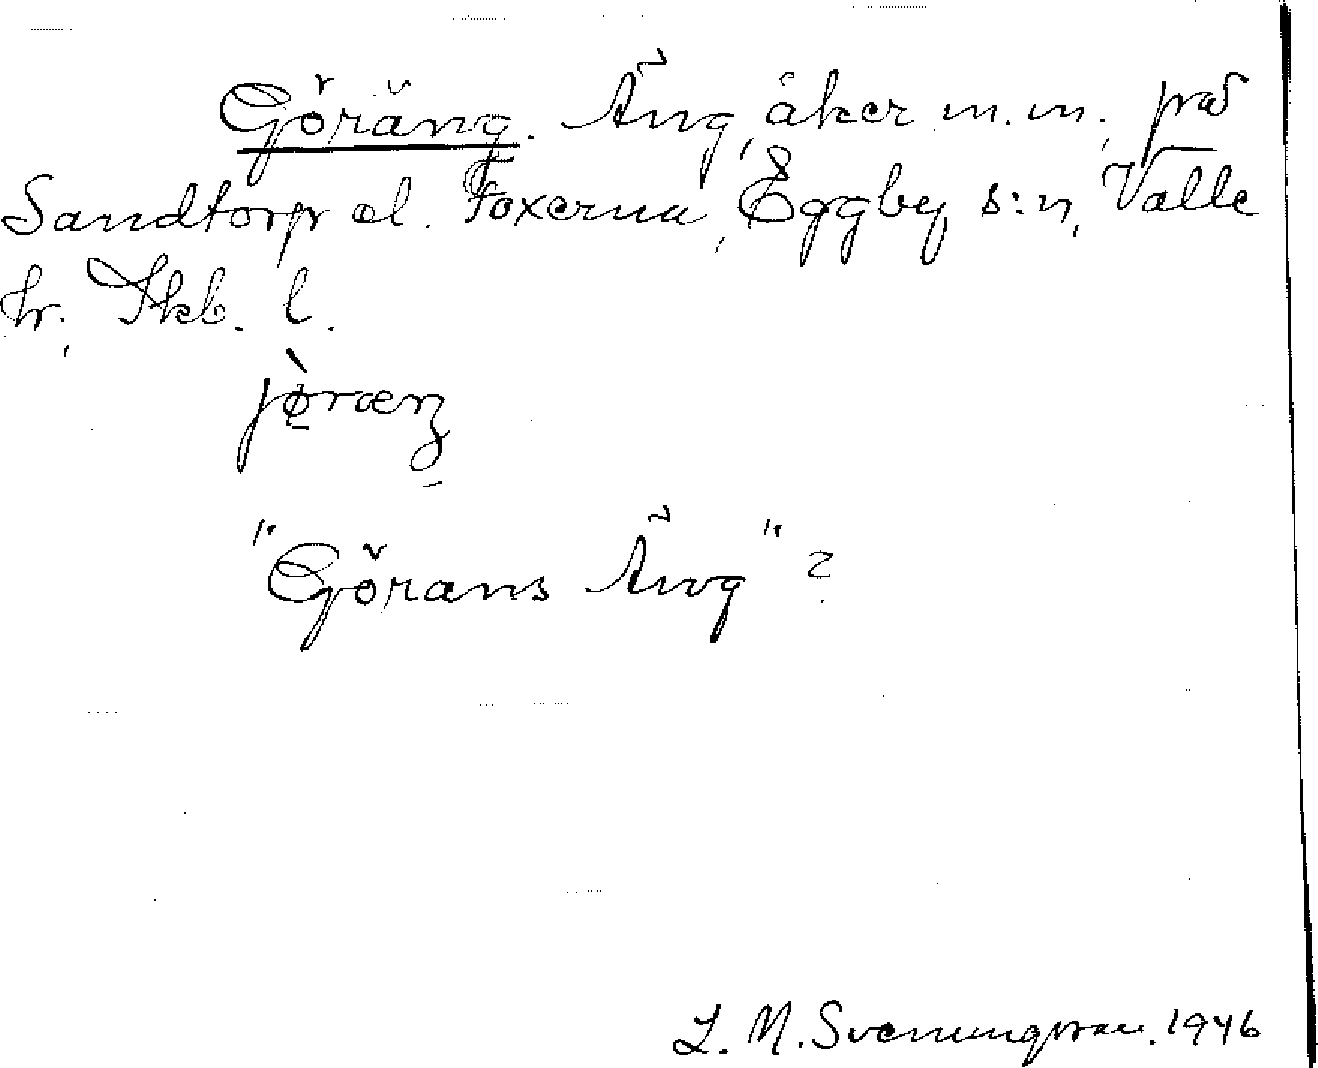 Göräng. Äng, åker m.m., på
Sandtorp el. Foxerna, Eggby s:n, Valle
hr, Skb. l.
jø̀ræŋ
"Görans Äng" ?
L. M. Svenungsson. 1946